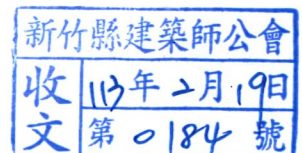 新竹縣建築師公會
收文
113年2月19日
第0184號